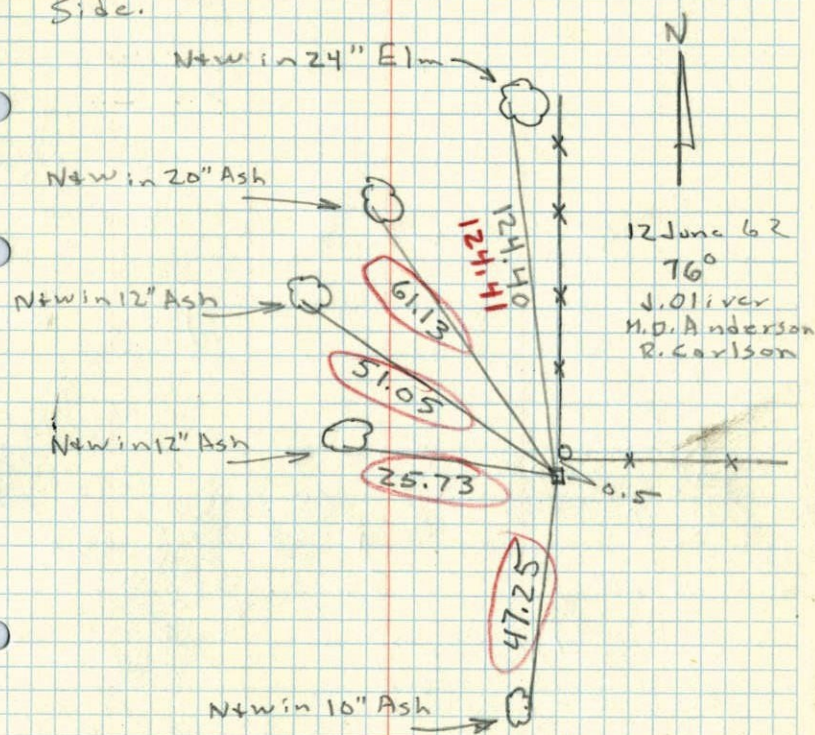 Side.
N+W in 24" Elm
N
N+W in 20" Ash
124.40
124.41
12 June 62
76°
J. Oliver
M.D. Anderson
R. Carlson
N+W in 12" Ash
61.13
51.05
N+W in 12" Ash
25.73
0.5
47.25
N+W in 10" Ash